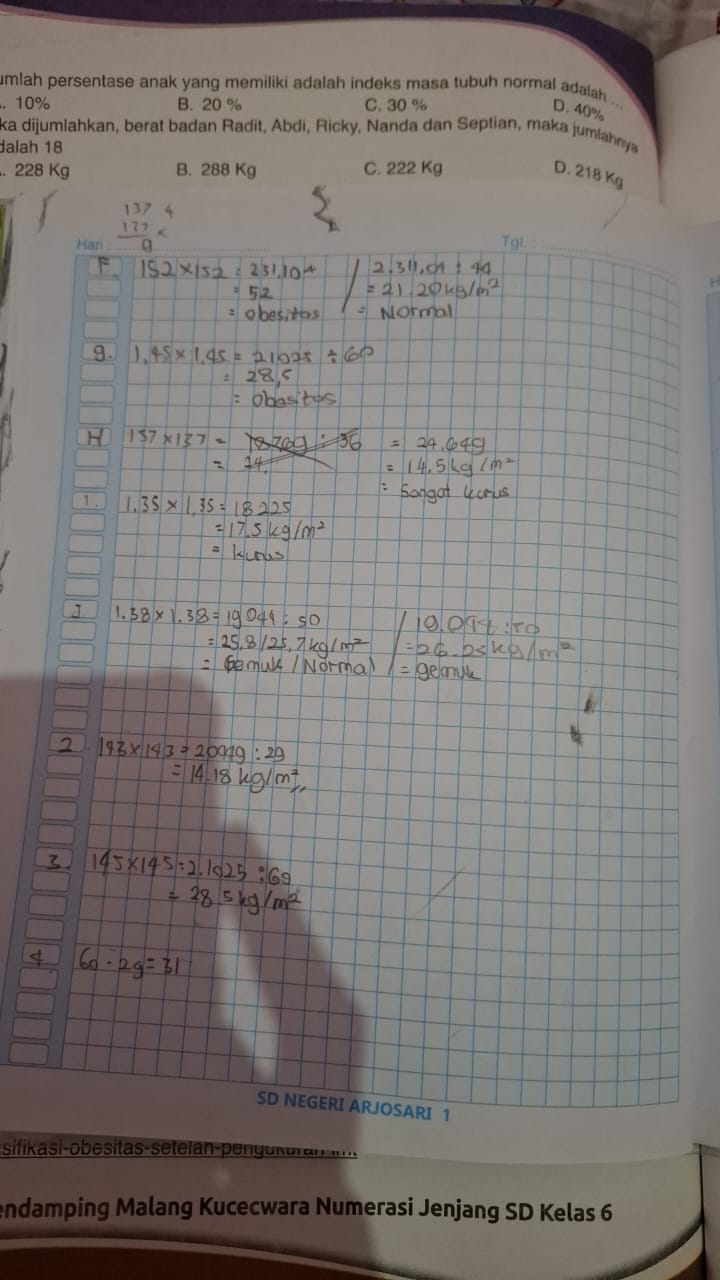 umlah persentase anak yang memiliki adalah indeks masa tubuh normal adalah ...
. 10% B. 20 % C. 30 % D. 40%
ka dijumlahkan, berat badan Radit, Abdi, Ricky, Nanda dan Septian, maka jumlahnya
dalah 18
. 228 Kg B. 288 Kg C. 222 Kg D. 218 Kg
137 4
137 x
9
Hari : Tgl :
F. 152 x 152 = / 2.311,04 : 49
= 52 = 21.20 kg/m²
= obesitas = Normal
g. 1,45 x 1.45 = 21025 ÷ 60
= 28,5
= obesitas
H 137 x 137 = = 24.649
= 24. = 14.5 kg/m²
= Sangat kurus
1. 1.35 x 1,35 = 18225
= 17.5 kg/m²
= kurus
J 1.38 x 1.38 = 19044 : 50 /
= 25,8/25,7 kg/m² = 26.25 kg/m²
= Gemuk / Normal = gemuk
2. 143 x 143 = 20449 : 29
= 14.18 kg/m²,,
3. 145 x 145 = 2.1025 : 60
= 28.5 kg/m²
4. 60 - 29 = 31
SD NEGERI ARJOSARI 1
sifikasi-obesitas-setelah-pengukuran
endamping Malang Kucecwara Numerasi Jenjang SD Kelas 6